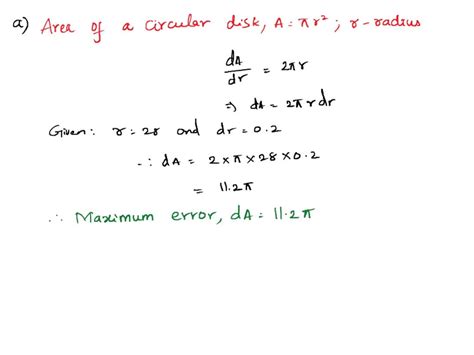 a) Area of a circular disk, A = πr² ; r - radius
dA/dr = 2πr
⇒ dA = 2πr dr
Given: r = 28 and dr = 0.2
∴ dA = 2 × π × 28 × 0.2
= 11.2π
∴ Maximum error, dA = 11.2π